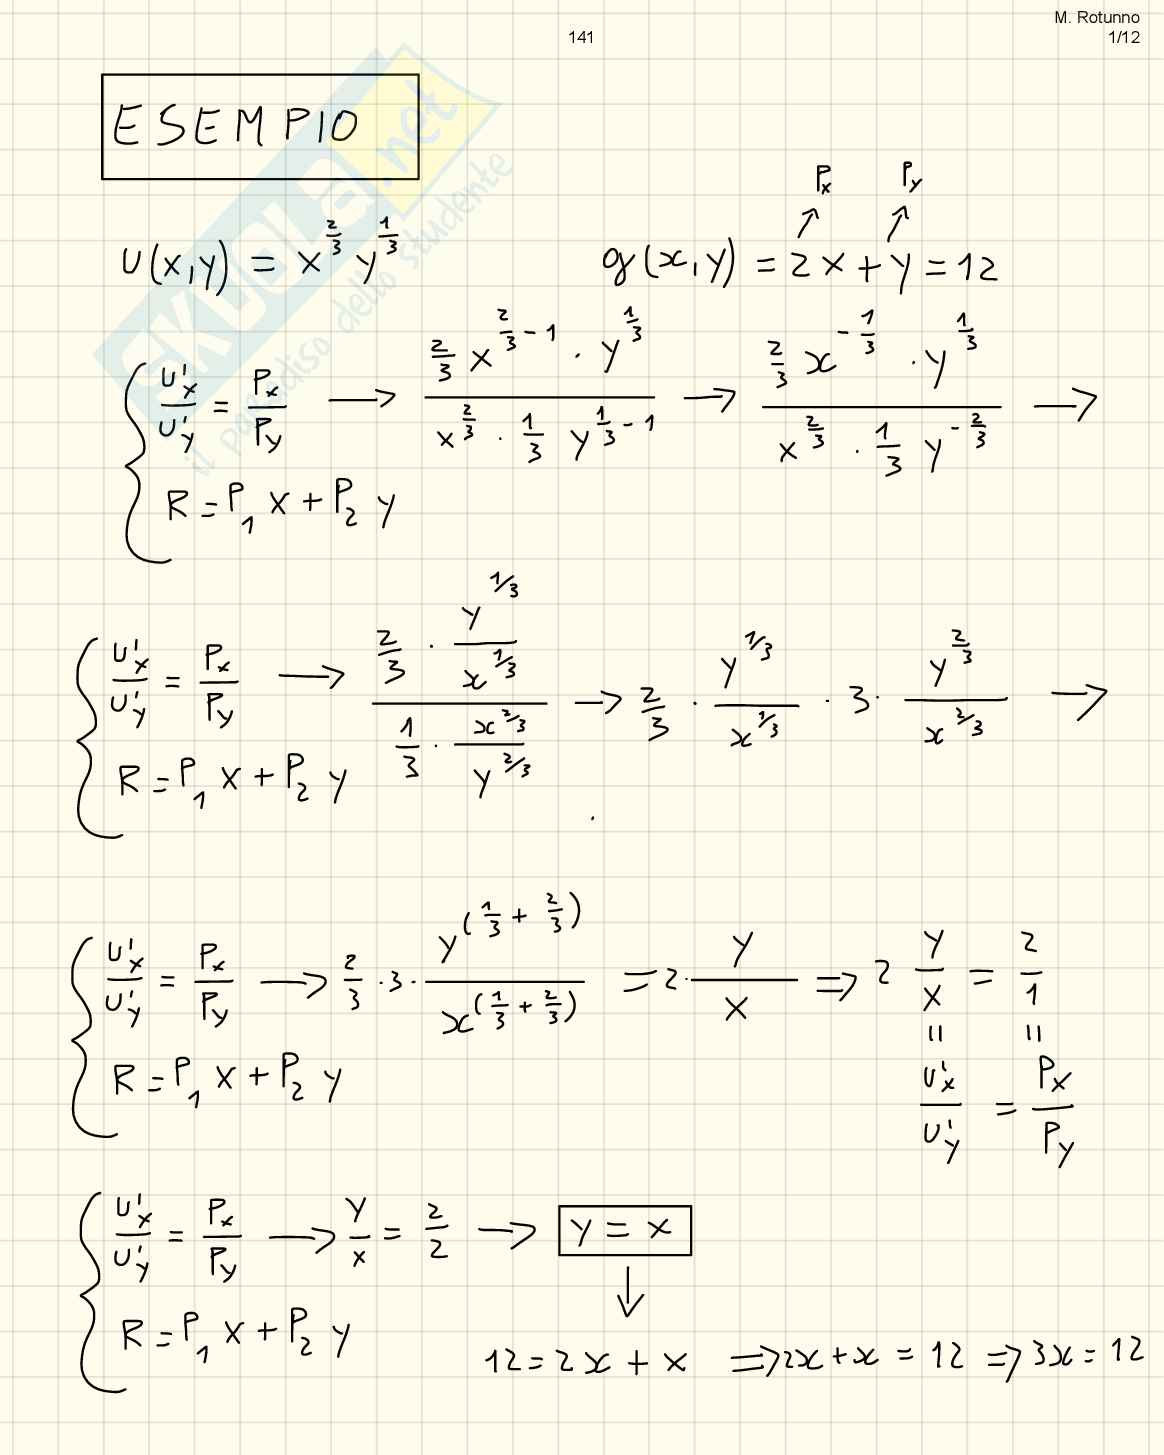 M. Rotunno
141 1/12
SKUOLA.net
il paradiso dello studente
ESEMPIO
Px Py
U(x,y) = x^(2/3) y^(1/3) g(x,y) = 2x + y = 12
U'x/U'y = Px/Py → (2/3 x^(2/3 - 1) · y^(1/3)) / (x^(2/3) · 1/3 y^(1/3 - 1)) → (2/3 x^(-1/3) · y^(1/3)) / (x^(2/3) · 1/3 y^(-2/3)) →
R = P₁ x + P₂ y
U'x/U'y = Px/Py → (2/3 · y^(1/3)/x^(1/3)) / (1/3 · x^(2/3)/y^(2/3)) → 2/3 · y^(1/3)/x^(1/3) · 3 · y^(2/3)/x^(2/3) →
R = P₁ x + P₂ y
U'x/U'y = Px/Py → 2/3 · 3 · y^(1/3 + 2/3)/x^(1/3 + 2/3) = 2 · y/x ⇒ 2 y/x = 2/1
R = P₁ x + P₂ y
= =
U'x/U'y = Px/Py
U'x/U'y = Px/Py → y/x = 2/2 → y = x
R = P₁ x + P₂ y
12 = 2x + x ⇒ 2x + x = 12 ⇒ 3x = 12